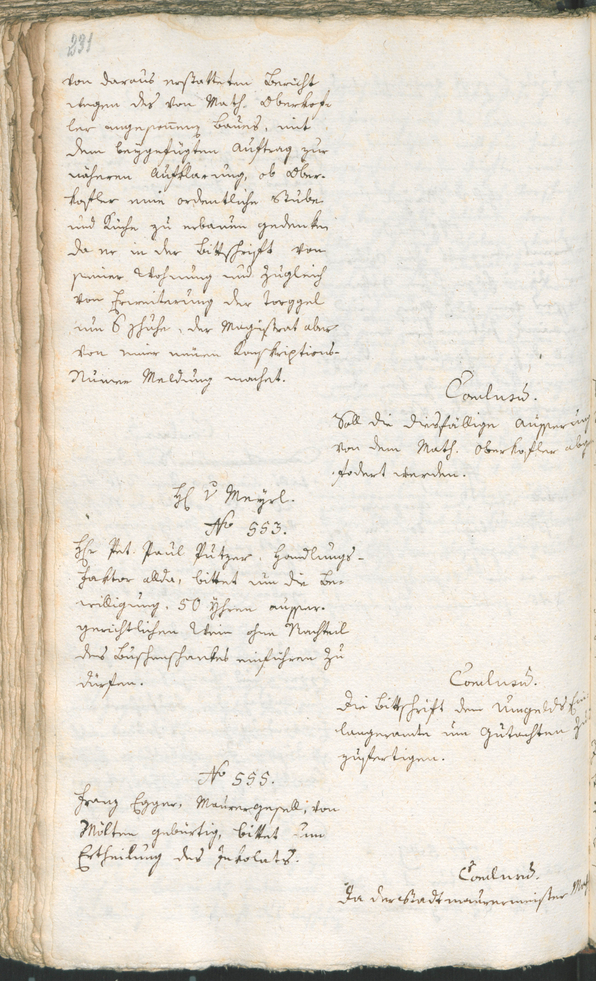 231
von daraus erstatteten Bericht
wegen des von Math. Oberkof-
ler angesonnenen Baues, mit
dem beygefügten Auftrag zur
näheren Aufklärung, ob Ober-
kofler eine ordentliche Stube
und Küche zu erbauen gedenke
da er in der Bittschrift von
seiner Wohnung und zugleich
von Erweiterung der Torggel
um 6 Schuhe, der Magistrat aber
von einer neuen Konskriptions-
Numer Meldung machet.
Conclusum.
Soll die diesfällige Äusserung
von dem Math. Oberkofler abge
fodert werden.
H v Meyrl.
No 553.
Hr Pet. Paul Putzer, Handlungs-
Faktor allda, bittet um die Be-
willigung, 50 Yhren ausser-
gerichtlichen Wein ohne Nachteil
des Buschenschankes einführen zu
dürfen.
Conclusum.
Die Bittschrift dem Umgelds Ein
langeramte um Gutachten zu
zufertigen.
No 555.
Franz Egger, Maurergesell, von
Mölten gebürtig, bittet um
Ertheilung des Inkolats.
Conclusum.
Da der Stadtmaurermeister